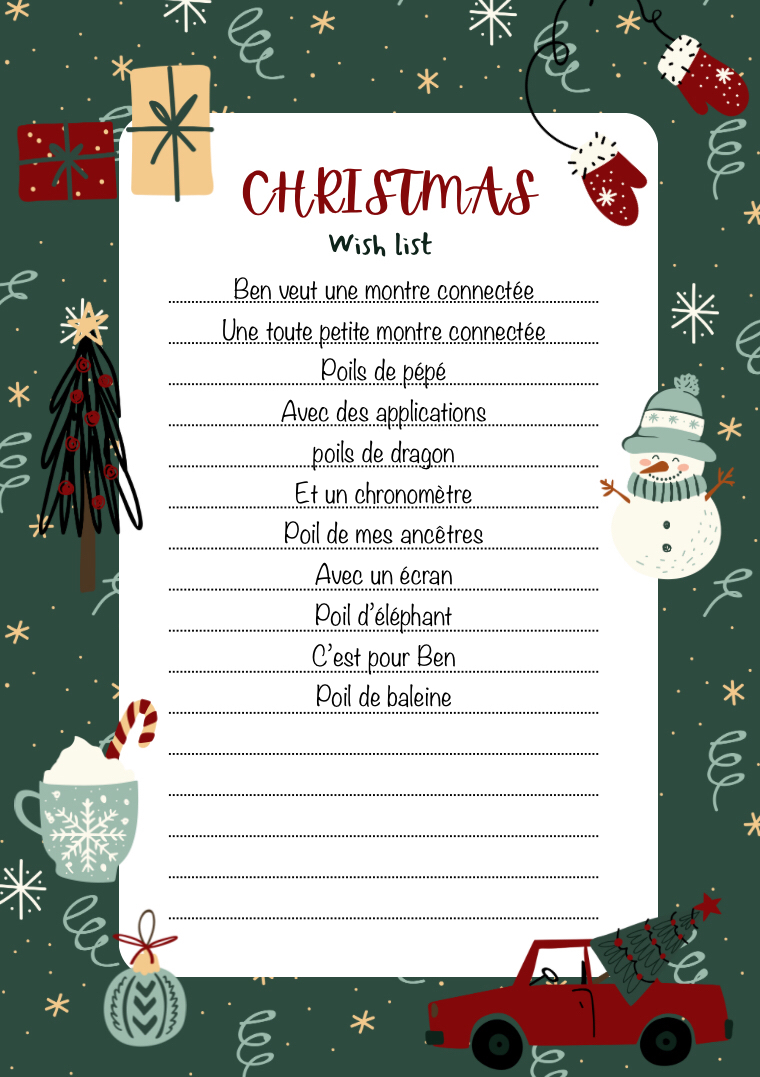 CHRISTMAS
Wish list
Ben veut une montre connectée
Une toute petite montre connectée
Poils de pépé
Avec des applications
poils de dragon
Et un chronomètre
Poil de mes ancêtres
Avec un écran
Poil d'éléphant
C'est pour Ben
Poil de baleine